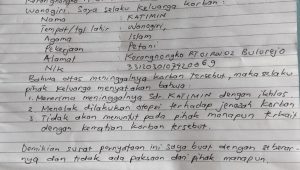 Wonogiri. Saya selaku keluarga korban :
Nama : KATIMIN
Tempat/tgl lahir : Wonogiri,
Agama : Islam
Pekerjaan : Petani
Alamat : Karangnongko RT 01 RW 02 Bulurejo
Nik :
Bahwa atas meninggalnya korban tersebut, maka selaku
pihak keluarga menyatakan bahwa :
1. Menerima meninggalnya Sdr. KATIMIN dengan ikhlas
2. Menolak dilakukan otopsi terhadap jenazah korban
3. Tidak akan menuntut pada pihak manapun terkait
dengan kematian korban tersebut.
Demikian surat pernyataan ini saya buat dengan sebenar-
nya dan tidak ada paksaan dari pihak manapun.